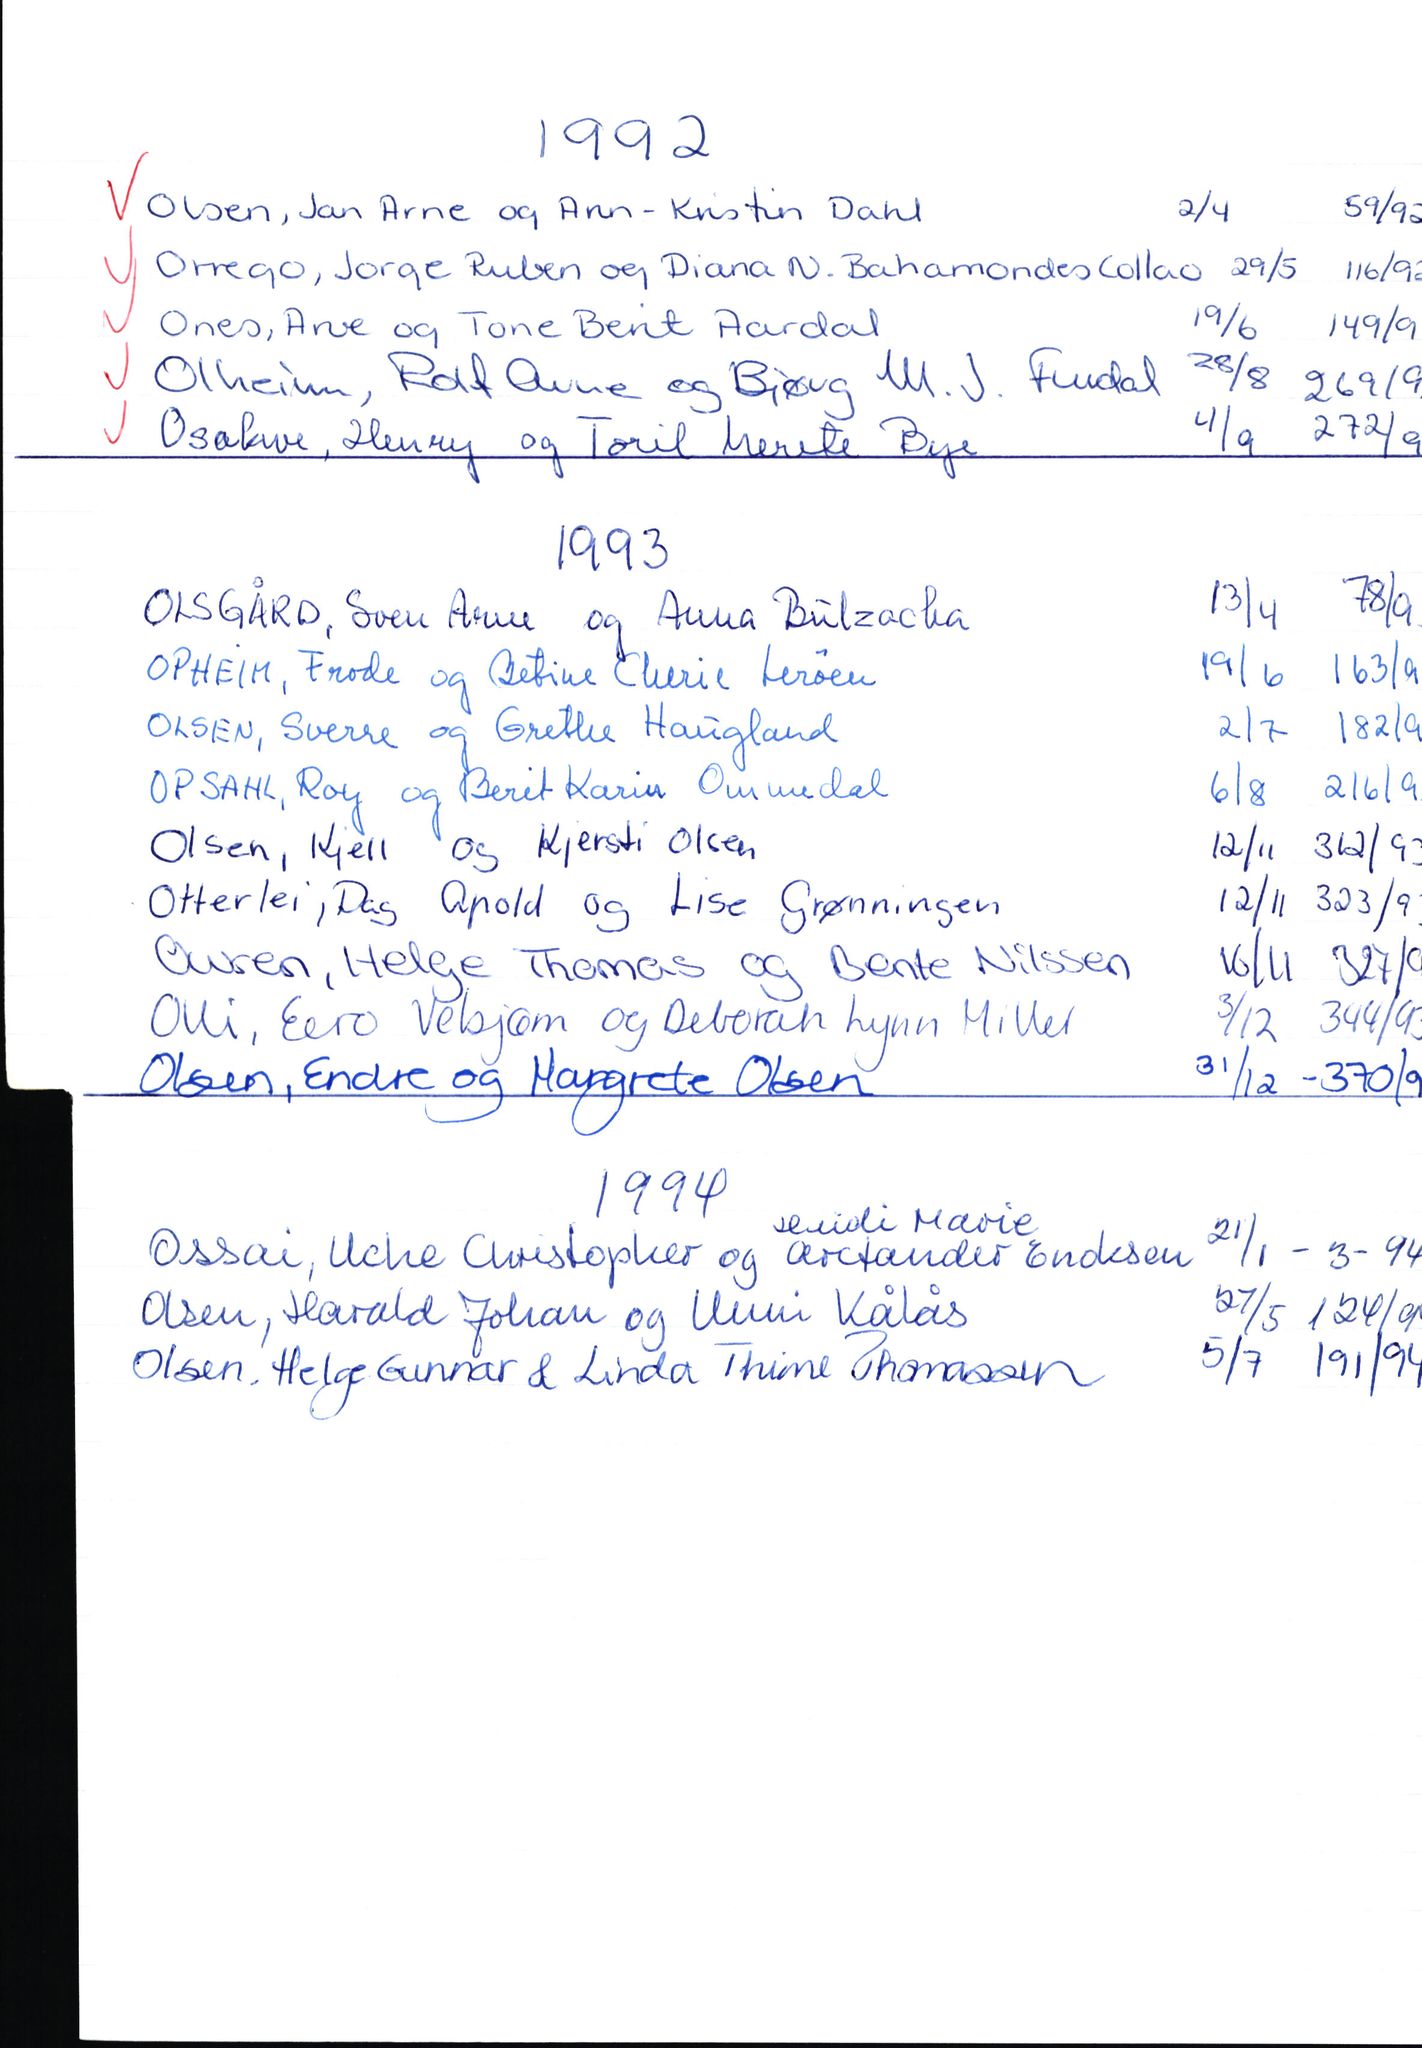 1992
Olsen, Jan Arne og Ann-Kristin Dahl 2/4 59/92
Orrego, Jorge Ruben og Diana N. Bahamondes Collao 29/5 116/92
Ones, Arve og Tone Berit Aardal 19/6 149/9
Olheim, Rolf Arne og Bjørg M. J. Furdal 28/8 269/9
Osakwe, Henry og Toril Merete Bye 4/9 272/9
1993
OLSGÅRD, Sven Arne og Anna Bulzacka 13/4 78/9
OPHEIM, Frode og Betine Cherie Leröen 19/6 163/9
OLSEN, Sverre og Grethe Haugland 2/7 182/9
OPSAHL, Roy og Berit Karin Ommedal 6/8 216/9
Olsen, Kjell og Kjersti Olsen 12/11 312/93
Otterlei, Dag Apold og Lise Grønningen 12/11 323/93
Owren, Helge Thomas og Bente Nilssen 16/11 327/9
Olli, Eero Vebjørn og Deborah Lynn Miller 3/12 344/93
Olsen, Endre og Margrete Olsen 31/12 - 370/9
1994
Heidi Marie
Ossai, Uche Christopher og Arctander Eriksen 21/1 - 3 - 94
Olsen, Harald Johan og Unni Kålås 27/5 124/94
Olsen. Helge Gunnar & Linda Thime Thomassen 5/7 191/94